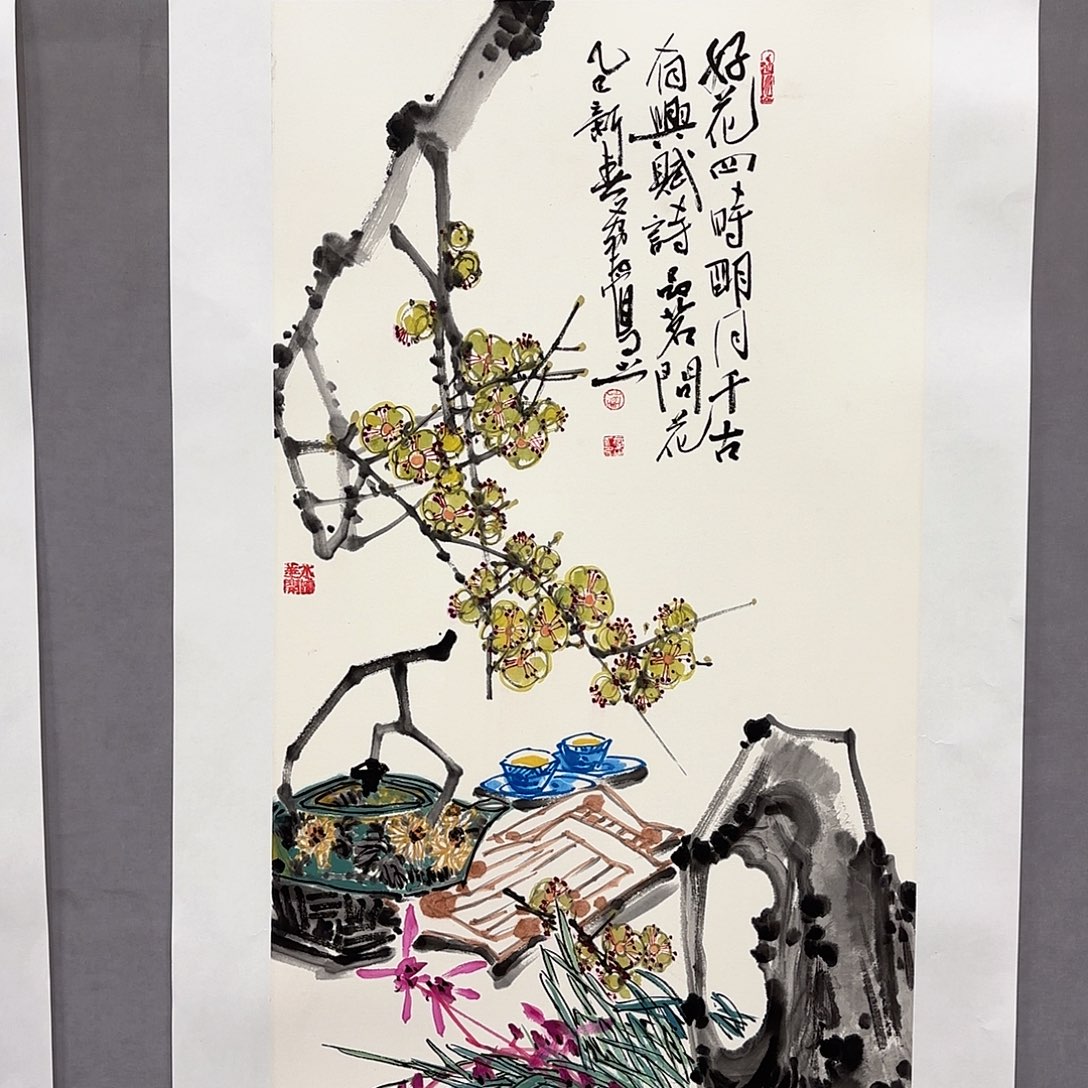 好花四時明月千古
有興賦詩品茗問花
乙巳新春